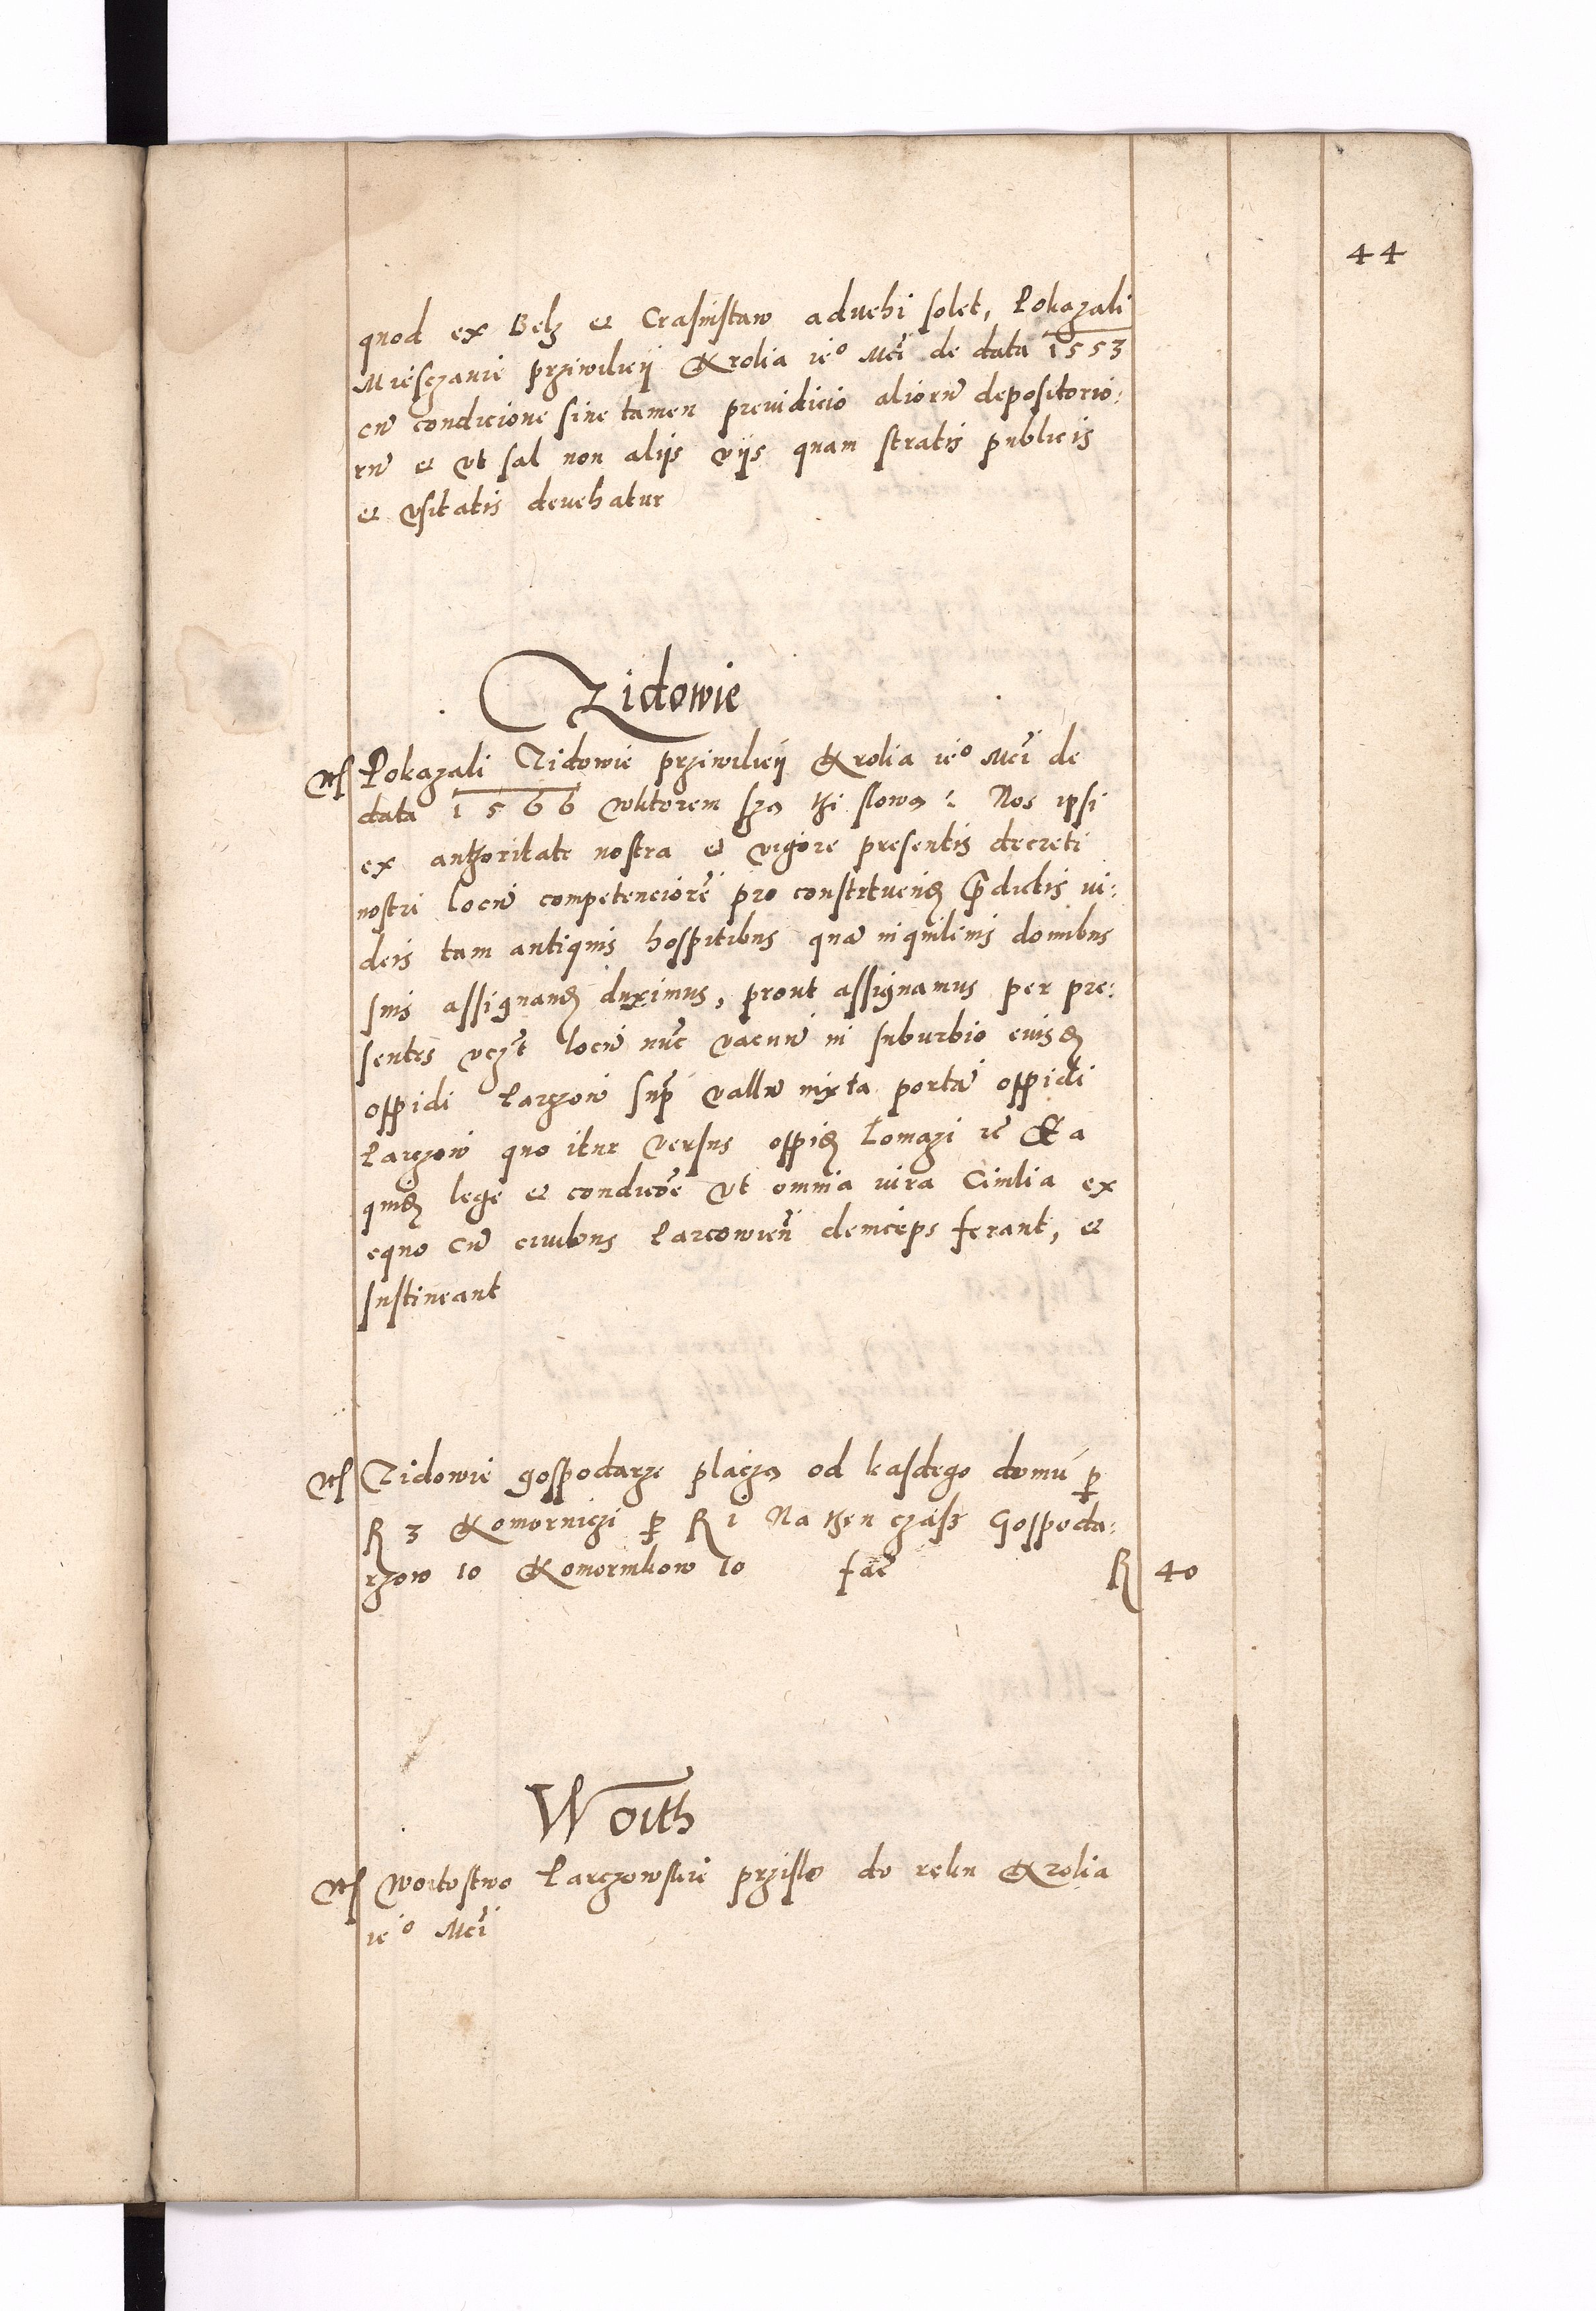 44
quod ex Belz et Crasnistaw aduehi solet, Pokazali
Miesczanie prziwileÿ Krolia ie° Mci de data 1553
cū condicione sine tamen preiudicio aliorū depositorio:
rū et vt sal non alijs vijs quam stratis publicis
et vsitatis deuehatur
Zidowie
Pokazali Zidowie prziwileÿ Krolia ie° Mci de
data 1566 wktorem sza thi slowa : Nos ipsi
ex authoritate nostra et vigore presentis decreti
nostri locū competenciorē pro construend p̄dictis iu:
deis tam antiquis hospitibus quā inquilinis domibus
suis assignand duximus, prout assignamus per pre:
sentes vcz̄t locū nūc vacuū in suburbio euisd
oppidi Parczow sup̄ vallū iuxta portā oppidi
Parczow quo itur versus oppid Lomazi rē Ea
quid lege et condicōe vt omnia iura Ciuilia ex
equo cū ciuibus Parcowien̄ deinceps ferant, et
sustineant
Zidowie gospodarze placza od kasdego domu ꝑ
R 3 Komorniczi ꝑ R 1 Na then czass Gospoda:
rzow 10 Komornikow 10 fac̄ R 40
Woith
Woitostwo Parczowskie przislo do reku Krolia
ie° Mci